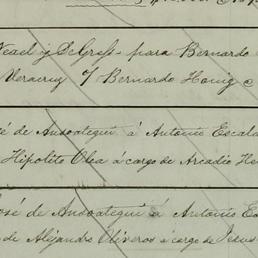 Neael y DeGress para Bernardo
Veracruz 7 Bernardo Honig
sé de Ansoategui á Antonio Escala
Hipolito Olea á cargo de Arcadio He
José de Ansoategui á Antonio Es
de Alejandro Oliveros á cargo de Jesus